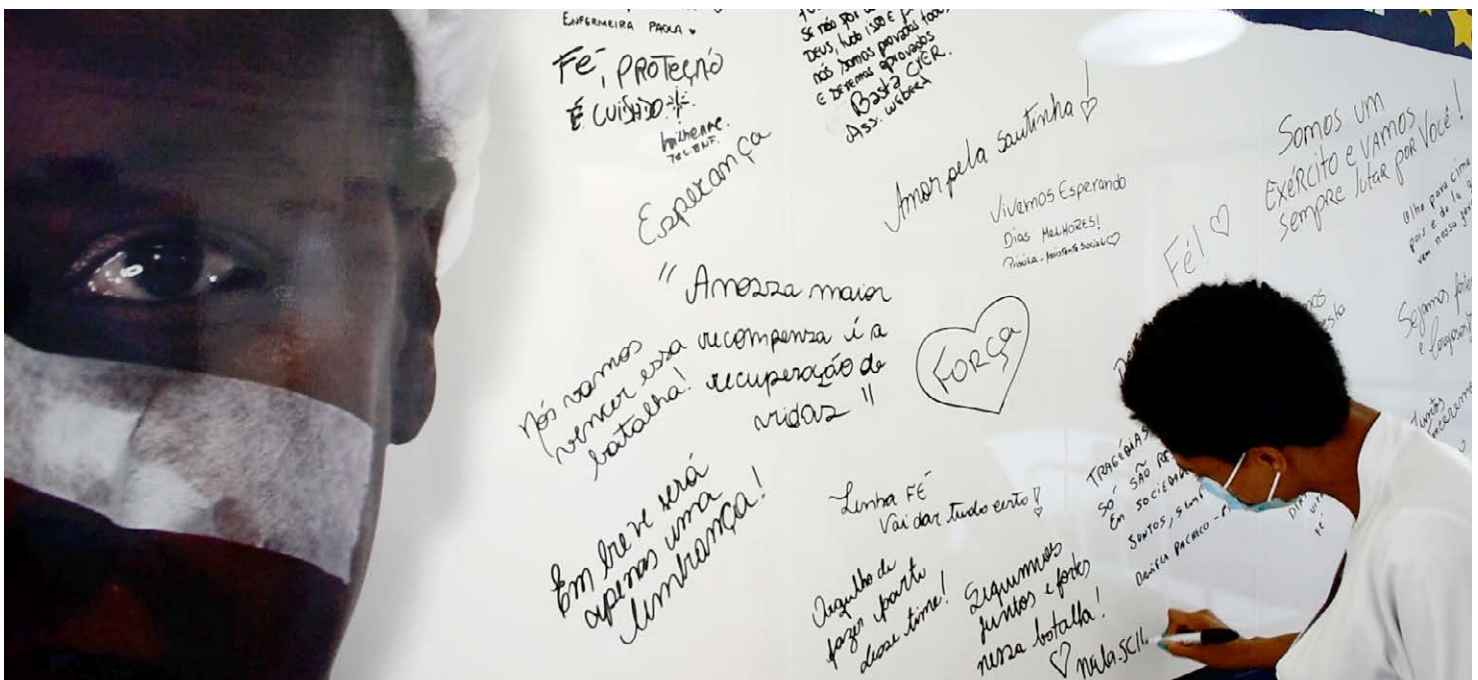 ENFERMEIRA PAOLA
FÉ, PROTEÇÃO
E CUIDADO
TEC. ENF.
Esperança
Se não for
Deus, tudo isso é
nós somos provados todos
e seremos aprovados
Basta CRER.
Ass. Webera
Amor pela Santinha!
Vivemos Esperando
Dias MELHORES!
Priscila - Assistente Social
Fé!
Somos um
EXÉRCITO e VAMOS
sempre lutar por Você!
olha para cima
pois é de lá q
vem nossa
Sejamos fortes
e corajosos
Juntos
venceremos
"A nozza maior
recompenza é a
recuperação de
vidaz"
Nós vamos
vencer essa
batalha!
FORÇA
Em breve será
apenas uma
lembrança!
Tenha FÉ
Vai dar tudo certo!
Orgulho de
fazer parte
desse time!
Seguimos
juntos e fortes
nessa batalha!
Nala-SCIH
TRAGÉDIAS
SÓ SÃO RE
EM SOCIEDADE
JUNTOS, SEM
DANIELA PACHECO -